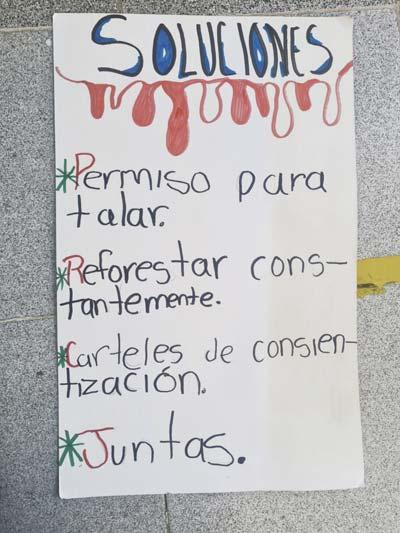 SOLUCIONES
*Permiso para
talar.
*Reforestar cons-
tantemente.
*Carteles de consien-
tización.
*Juntas.